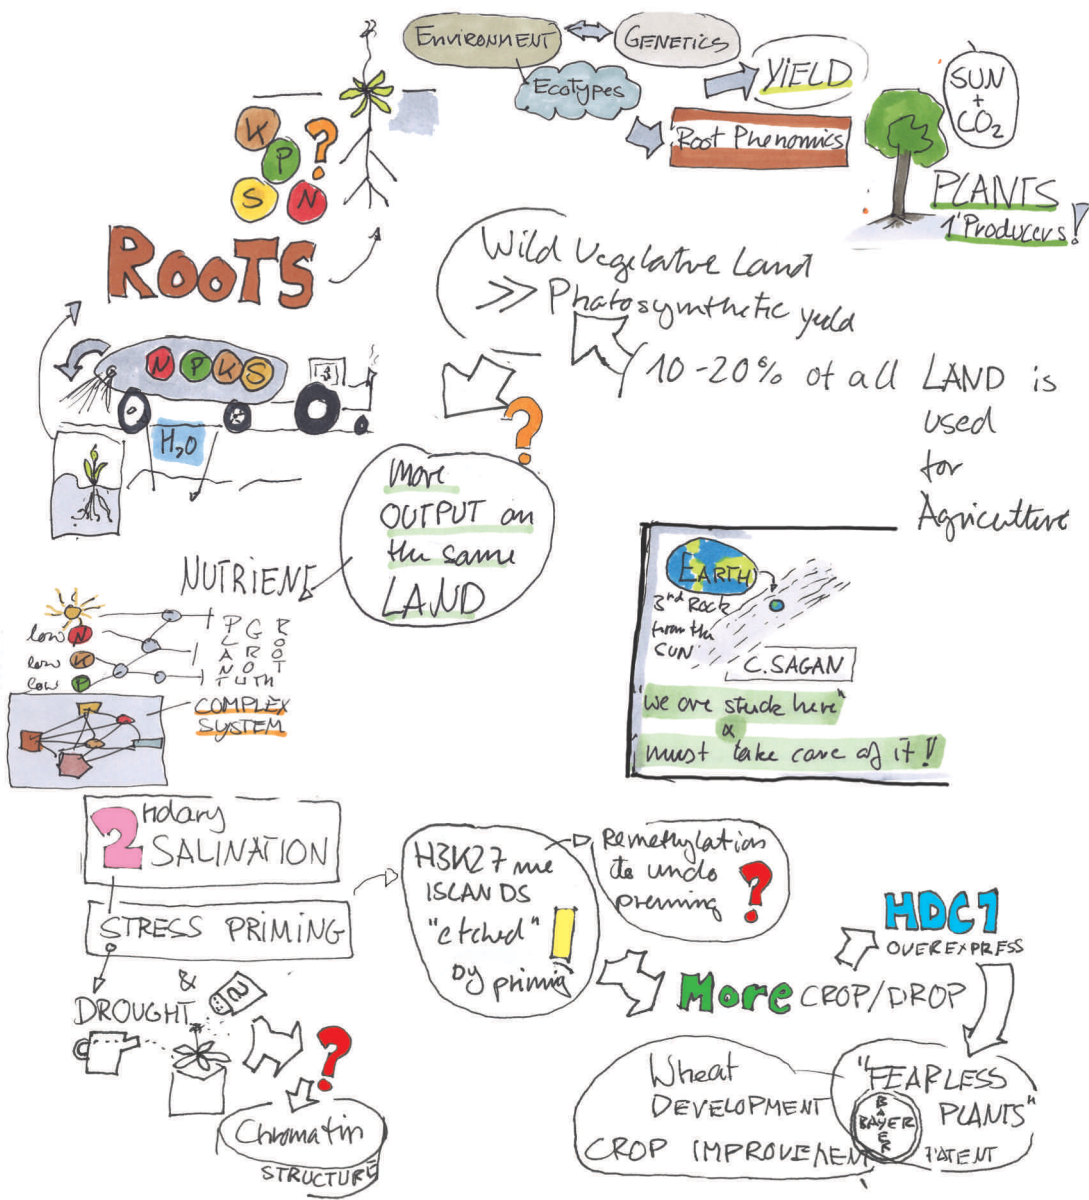 ENVIRONMENT
GENETICS
Ecotypes
YIELD
Root Phenomics
SUN
+
CO2
PLANTS
1' Producers!
K
P
?
S
N
ROOTS
Wild Vegetative Land
>> Photosynthetic yield
10-20% of all LAND is
used
for
Agriculture
N P K S
H2O
?
More
OUTPUT on
the same
LAND
NUTRIENT
low N
low K
low P
PLANT
GROUTH
ROOT
COMPLEX
SYSTEM
EARTH
3rd Rock
from the
SUN
C.SAGAN
"we are stuck here"
&
must take care of it!
2ndary
SALINATION
STRESS PRIMING
&
DROUGHT
?
Chromatin
STRUCTURE
H3K27 me
ISLANDS
"etched"
by priming
Remethylation
to undo
premning
?
HDC1
OVEREXPRESS
More CROP/DROP
Wheat
DEVELOPMENT
CROP IMPROVEMENT
"FEARLESS
PLANTS"
BAYER
BAYER
PATENT